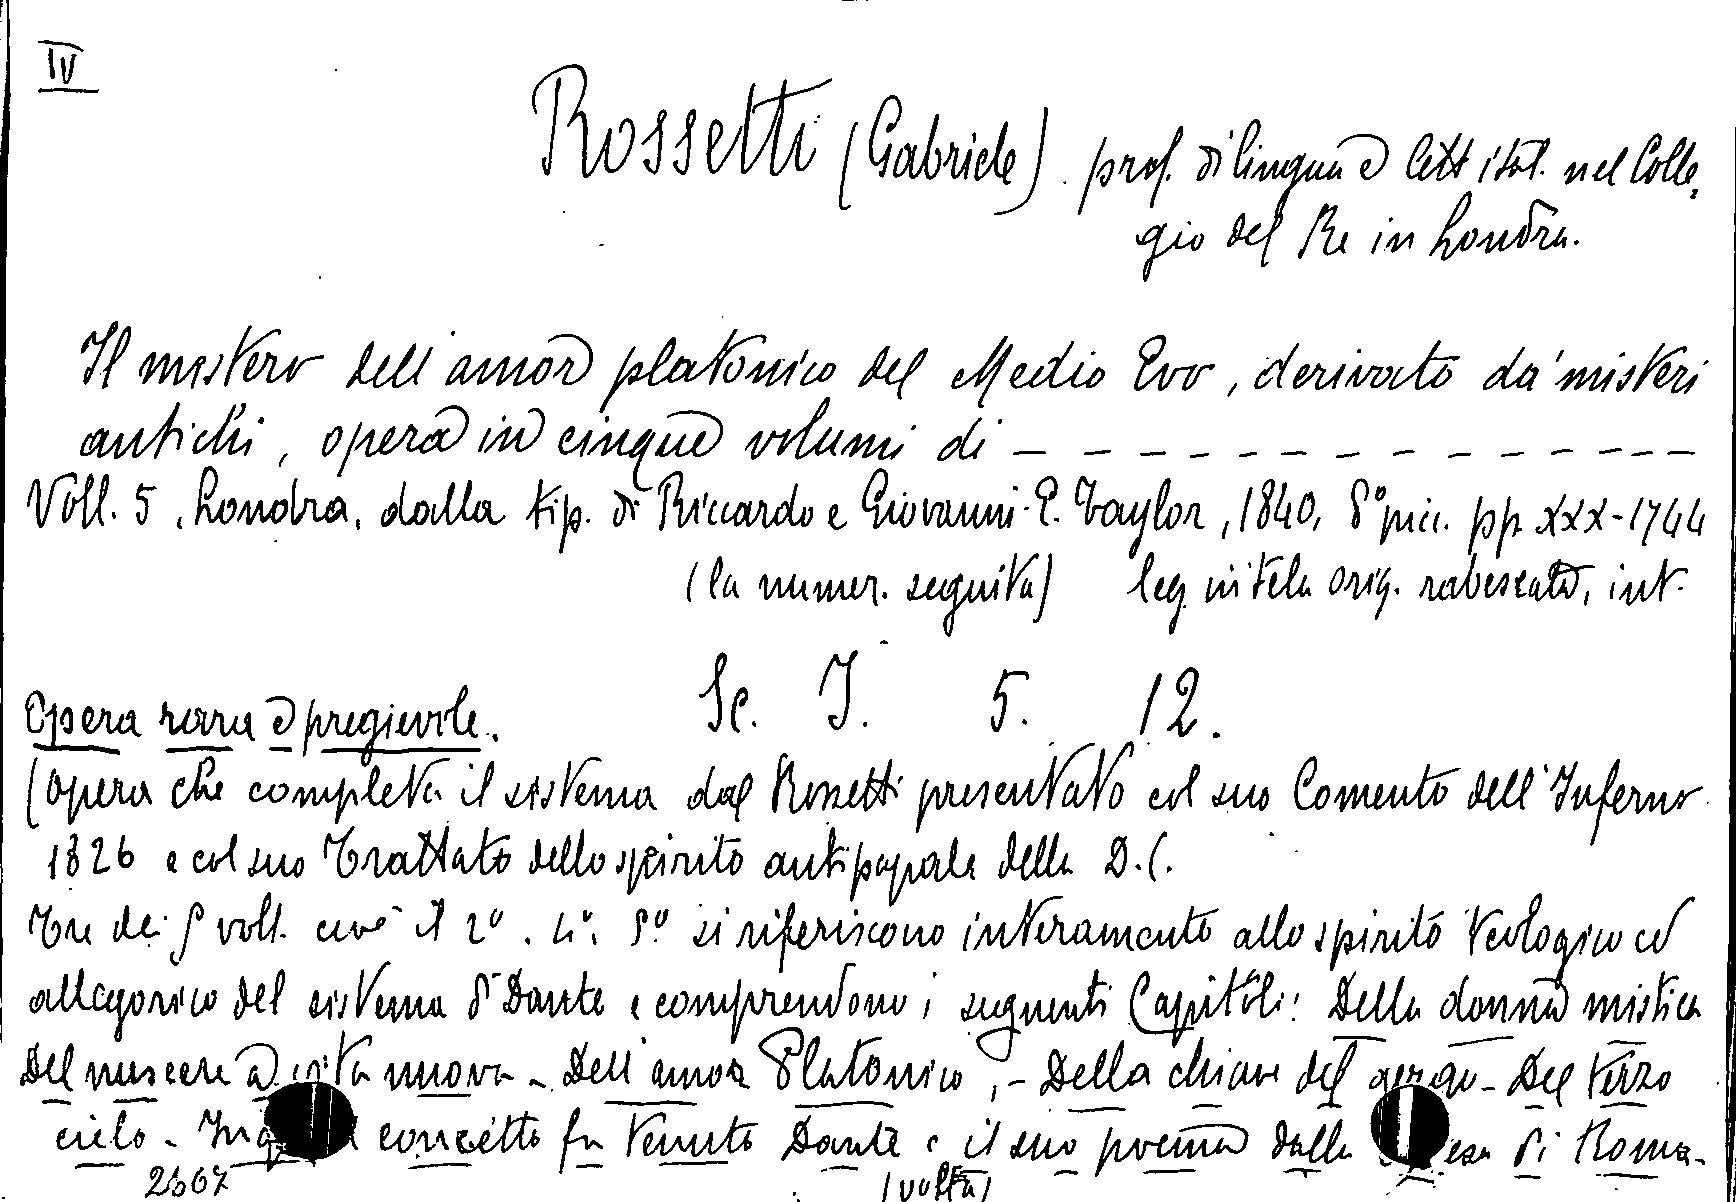 IV
Rossetti (Gabriele) prof. di lingua e lett ital. nel Colle,
gio del Re in Londra.
Il mistero dell'amor platonico del Medio Evo, derivato da' misteri
antichi, opera in cinque volumi di _ _ _ _ _ _ _ _ _ _ _ _ _ _ _
Voll. 5, Londra, dalla tip. di Riccardo e Giovanni E. Taylor, 1840, 8° picc. pp. XXX-1744
(la numer. seguita) leg. in tela orig. rabescata, int.
Sc. I. 5. 12.
Opera rara e pregievole.
(Opera che completa il sistema dal Rossetti presentato col suo Comento dell'Inferno
1826 e col suo Trattato dello spirito antipapale della D.C.
Tre dei 5 voll. cioè il 2° . 4°. 5° si riferiscono interamente allo spirito teologico ed
allegorico del sistema di Dante e comprendono i seguenti Capitoli: Della donna mistica
Del nascere a vita nuova - Dell'amor Platonico, - Della chiave del gergo - Del terzo
cielo - In concetto fu tenuto Dante e il suo poema dalla di Roma -
2667 (volta)